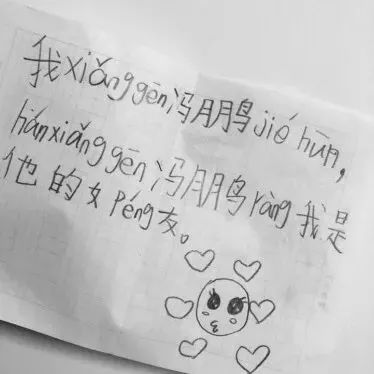 我xiǎng gēn冯朋鹏jié hūn,
hánxiǎng gēn冯朋鹏ràng我是
他的女péng友。